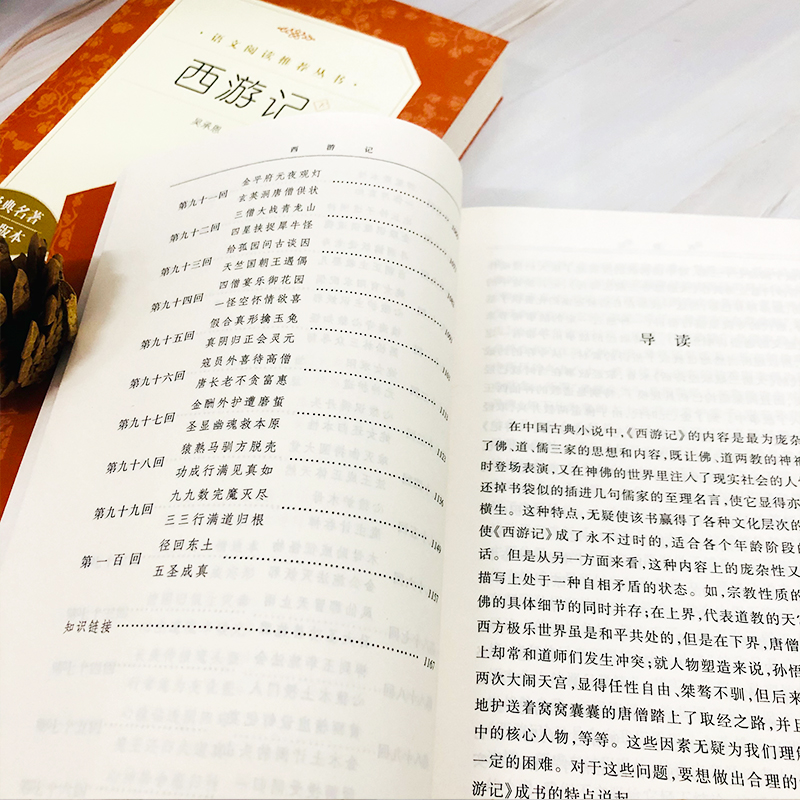 语文阅读推荐丛书
西游记
吴承恩
经典名著
版本
西游记
第九十一回 金平府元夜观灯
玄英洞唐僧供状
第九十二回 三僧大战青龙山
四星挟捉犀牛怪
第九十三回 给孤园问古谈因
天竺国朝王遇偶
第九十四回 四僧宴乐御花园
一怪空怀情欲喜
第九十五回 假合真形擒玉兔
真阴归正会灵元
第九十六回 寇员外喜待高僧
唐长老不贪富惠
第九十七回 金酬外护遭磨蜇
圣显幽魂救本原 1123
第九十八回 猿熟马驯方脱壳
功成行满见真如 1136
第九十九回 九九数完魔灭尽
三三行满道归根 1149
第一百回 径回东土
五圣成真 1157
知识链接 1167
导读
在中国古典小说中，《西游记》的内容是最为庞杂
了佛、道、儒三家的思想和内容，既让佛、道两教的神
时登场表演，又在神佛的世界里注入了现实社会的人
还掉书袋似的插进几句儒家的至理名言，使它显得亦
横生。这种特点，无疑使该书赢得了各种文化层次的
使《西游记》成了永不过时的，适合各个年龄阶段的
话。但是从另一方面来看，这种内容上的庞杂性又
描写上处于一种自相矛盾的状态。如，宗教性质的
佛的具体细节的同时并存；在上界，代表道教的天
西方极乐世界虽是和平共处的，但是在下界，唐僧
上却常和道师们发生冲突；就人物塑造来说，孙悟
两次大闹天宫，显得任性自由、桀骜不驯，但后来
地护送着窝窝囊囊的唐僧踏上了取经之路，并且
中的核心人物，等等。这些因素无疑为我们理解
一定的困难。对于这些问题，要想做出合理的
游记》成书的特点说起